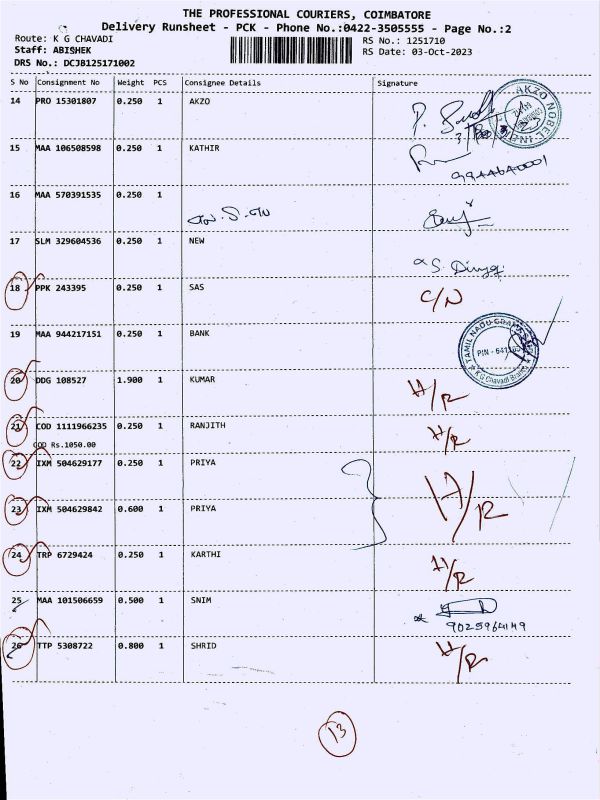 THE PROFESSIONAL COURIERS, COIMBATORE
Delivery Runsheet - PCK - Phone No.:0422-3505555 - Page No.:2
Route: K G CHAVADI RS No.: 1251710
Staff: ABISHEK RS Date: 03-Oct-2023
DRS No.: DCJB125171002
S No Consignment No Weight PCS Consignee Details Signature
14 PRO 15301807 0.250 1 AKZO
AKZO NOBEL INDIA
15 MAA 106508598 0.250 1 KATHIR
9944640001
16 MAA 570391535 0.250 1
17 SLM 329604536 0.250 1 NEW
S. Divya
18 PPK 243395 0.250 1 SAS C/N
19 MAA 944217151 0.250 1 BANK
TAMIL NADU GRAMA
PIN - 641105
K G Chavadi Branch
20 DDG 108527 1.900 1 KUMAR H/R
21 COD 1111966235 0.250 1 RANJITH H/R
COD Rs.1050.00
22 IXM 504629177 0.250 1 PRIYA
23 IXM 504629842 0.600 1 PRIYA H/R
24 TRP 6729424 0.250 1 KARTHI H/R
25 MAA 101506659 0.500 1 SNIM
9025964149
26 TTP 5308722 0.800 1 SHRID H/R
13